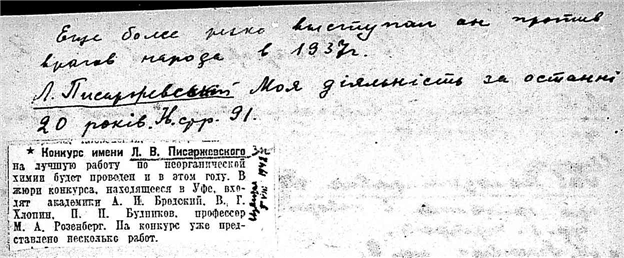 Еще более резко выступал он против
врагов народа в 1937г.
Л. Писаржевський Моя діяльність за останні
20 років. стр. 91.
★ Конкурс имени Л. В. Писаржевского
на лучшую работу по неорганической
химии будет проведен и в этом году. В
жюри конкурса, находящееся в Уфе, вхо-
дят академики А. И. Бродский, В. Г.
Хлопин, П. П. Будников, профессор
М. А. Розенберг. На конкурс уже пред-
ставлено несколько работ.